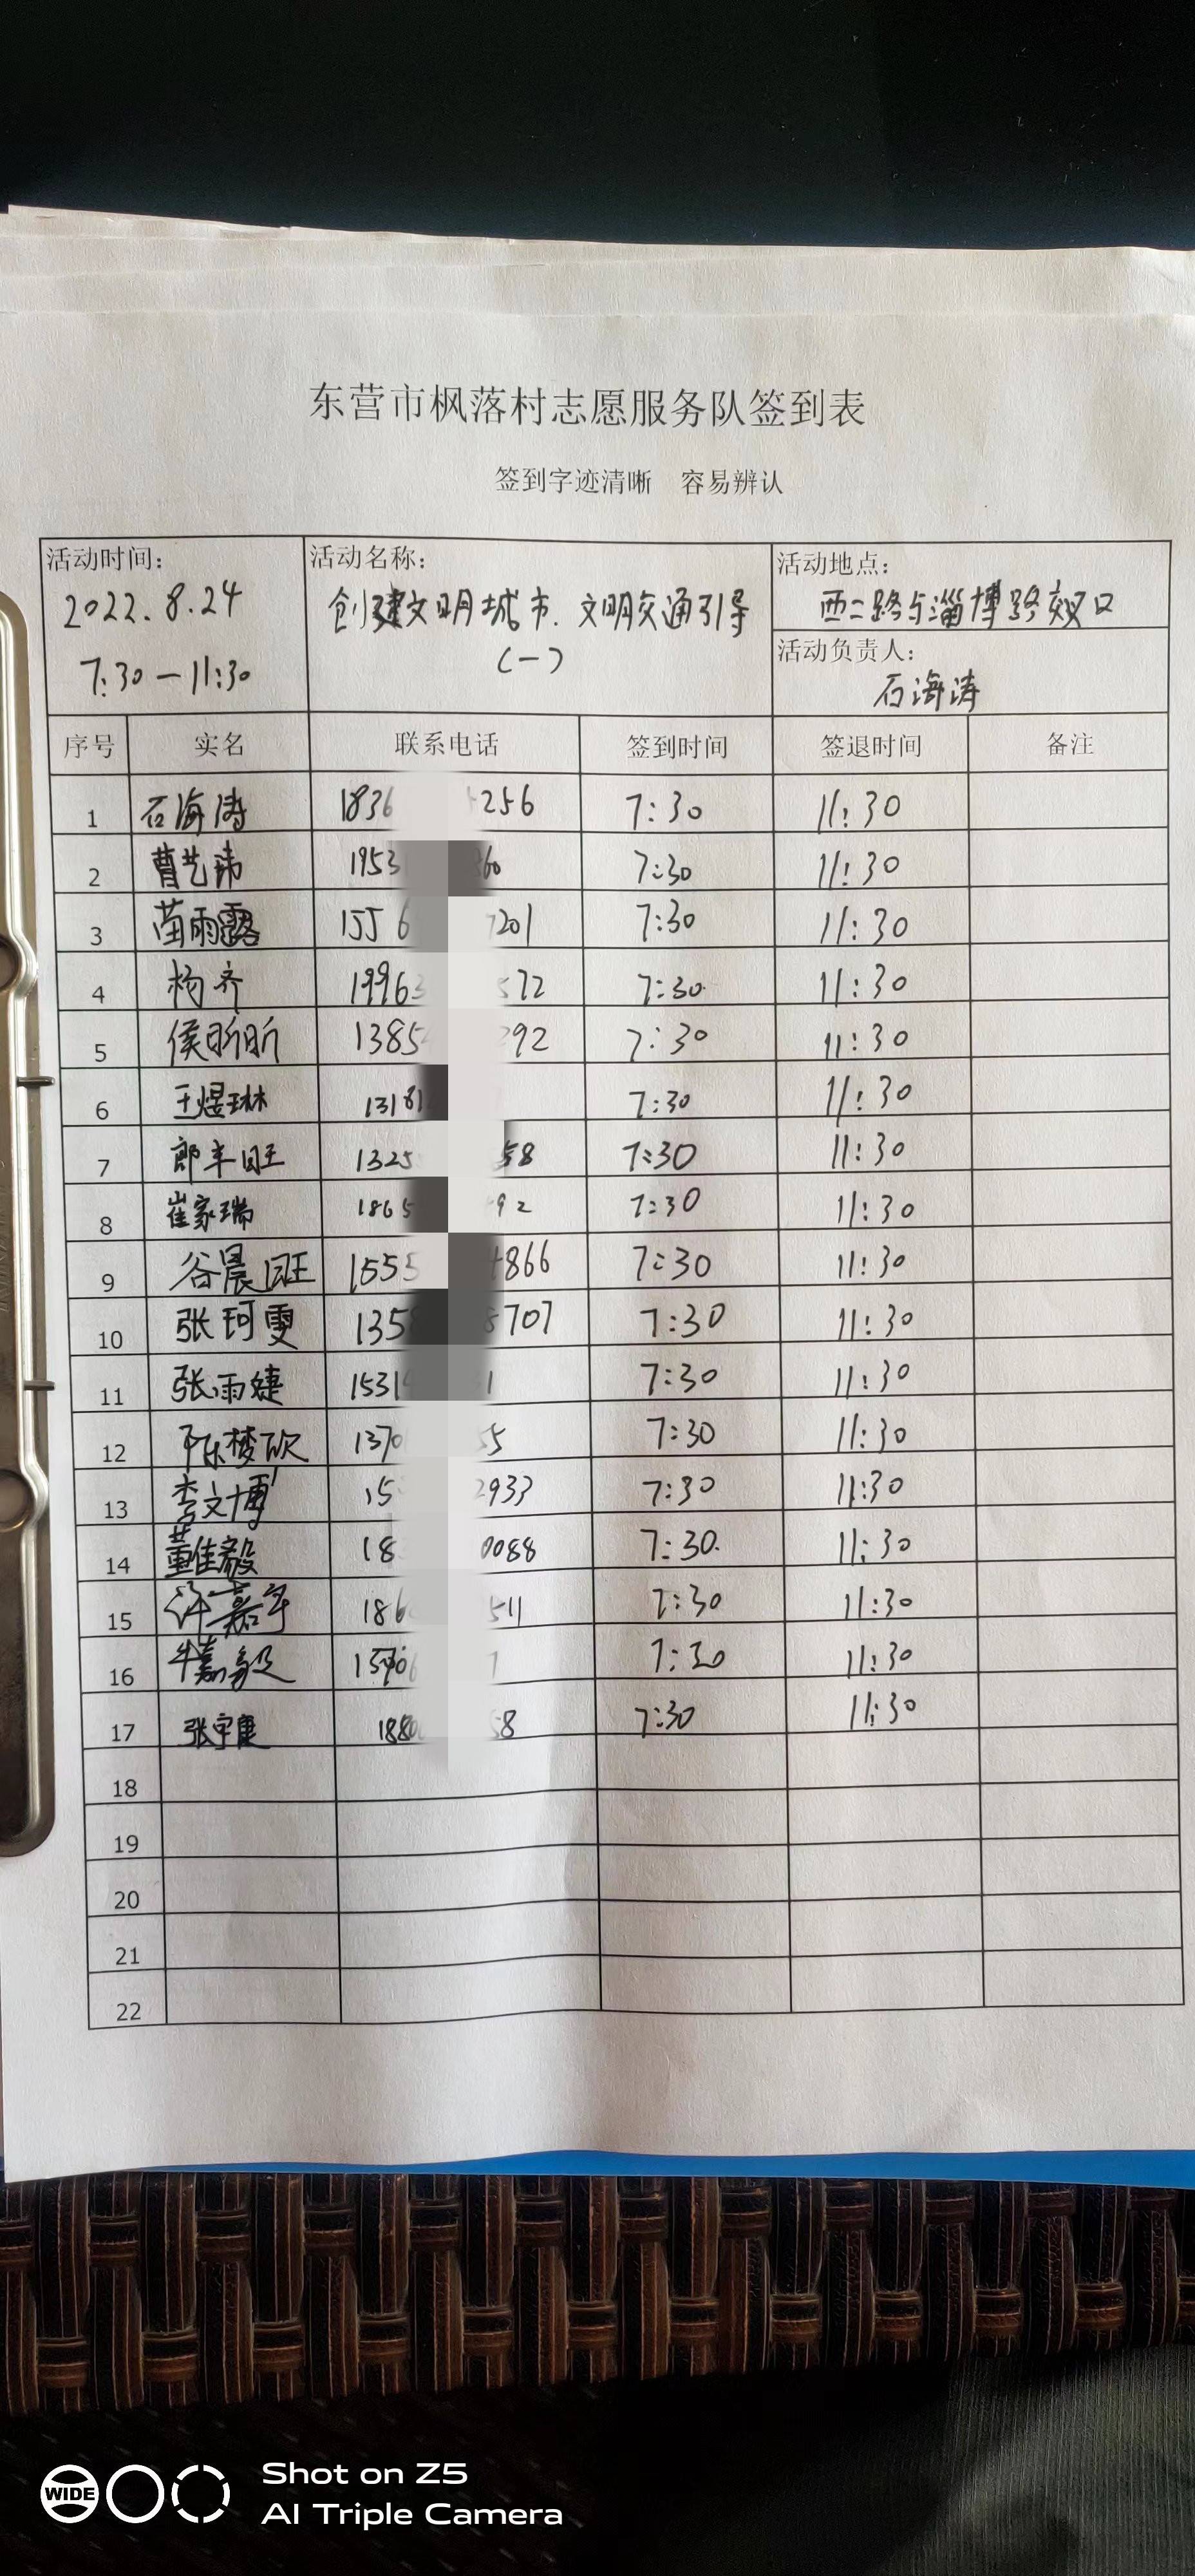 东营市枫落村志愿服务队签到表
签到字迹清晰 容易辨认
活动时间: 2022.8.24 7:30—11:30
活动名称: 创建文明城市、文明交通引导(一)
活动地点: 西二路与淄博路交叉口
活动负责人: 石海涛
序号 实名 联系电话 签到时间 签退时间 备注
1 石海涛 1836 256 7:30 11:30
2 曹艺玮 1953 60 7:30 11:30
3 苗雨露 1556 7201 7:30 11:30
4 杨齐 1996 572 7:30 11:30
5 侯昕昕 1385 292 7:30 11:30
6 王煜琳 1318 7:30 11:30
7 郎丰旺 1325 58 7:30 11:30
8 崔家瑞 1865 92 7:30 11:30
9 谷晨旺 1555 866 7:30 11:30
10 张珂雯 135 707 7:30 11:30
11 张雨婕 1531 1 7:30 11:30
12 陈梦欣 1370 55 7:30 11:30
13 李文博 15 2933 7:30 11:30
14 董佳毅 18 0088 7:30 11:30
15 许嘉宇 186 511 7:30 11:30
16 牛嘉毅 7:30 11:30
17 张宇康 188 58 7:30 11:30
18
19
20
21
22
WIDE
Shot on Z5
AI Triple Camera